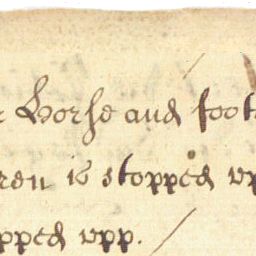 r Horse and foot
ren is stopped up
pped upp.